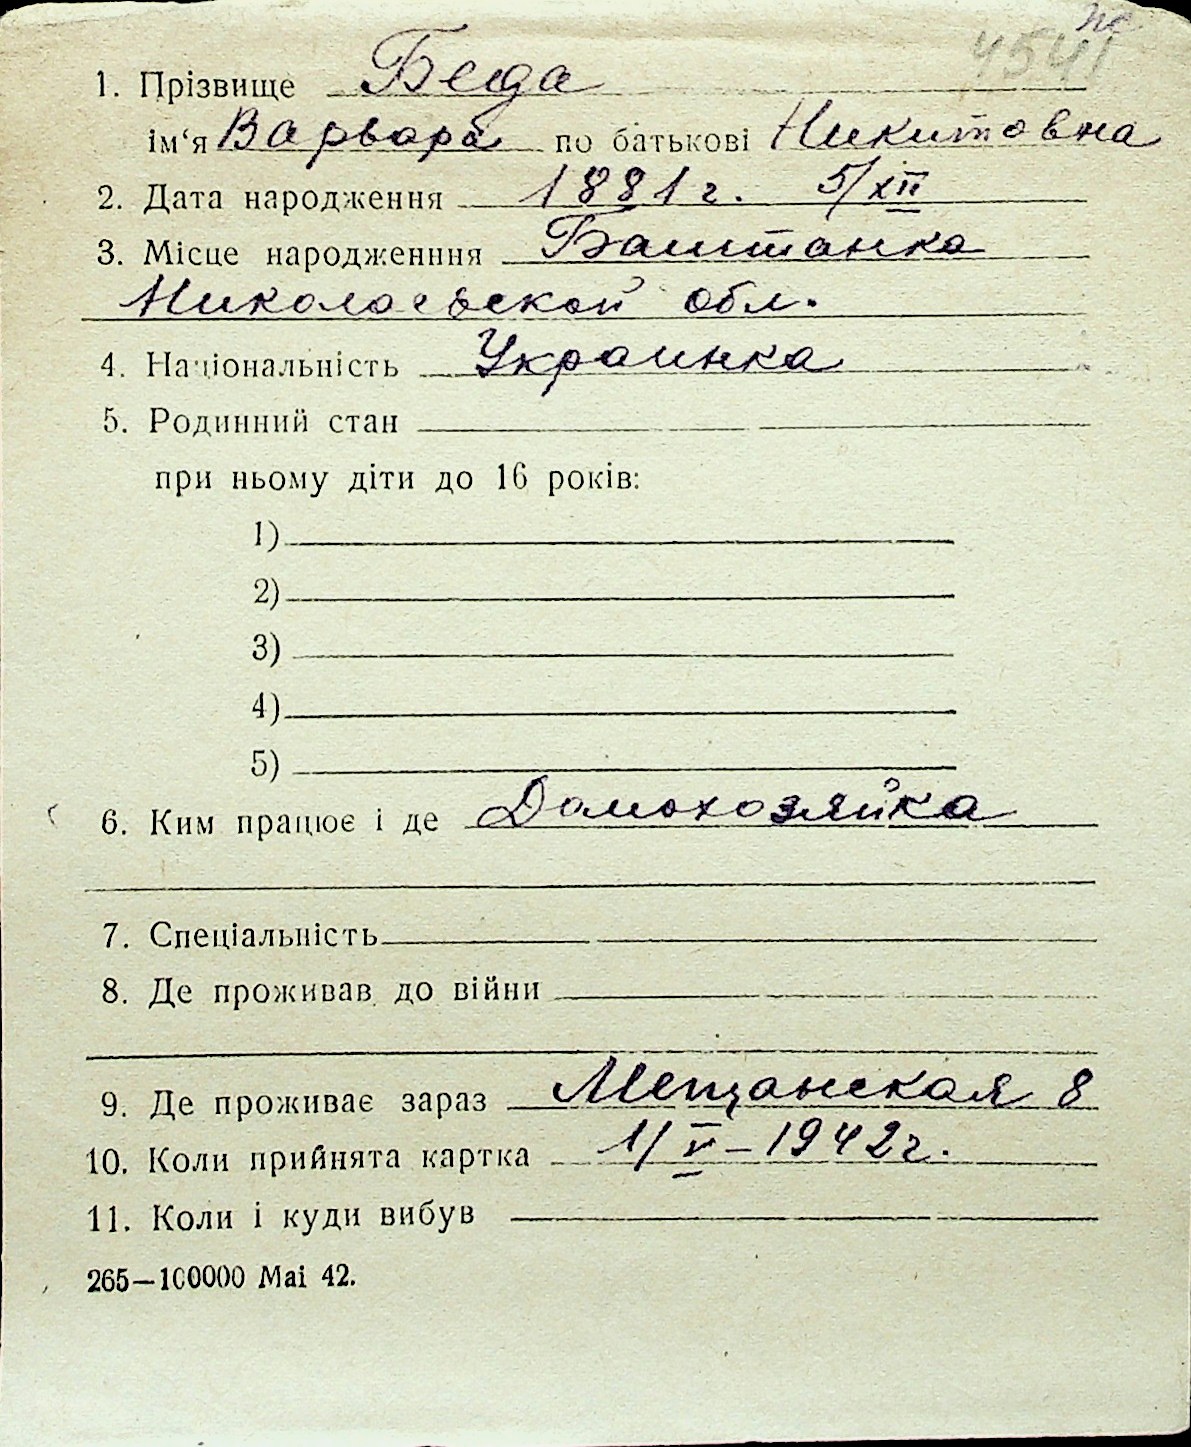 4541
1. Прізвище Беда
ім‘я Варвара по батькові Никитовна
2. Дата народження 1881 г. 5/XII
3. Місце народженння Баштанка
Николаевской обл.
4. Національність Украинка
5. Родинний стан
при ньому діти до 16 років:
1)
2)
3)
4)
5)
6. Ким працює і де Домохозяйка
7. Спеціальність
8. Де проживав до війни
9. Де проживає зараз Мещанская 8
10. Коли прийнята картка 1/V – 1942 г.
11. Коли і куди вибув
265—100000 Mai 42.